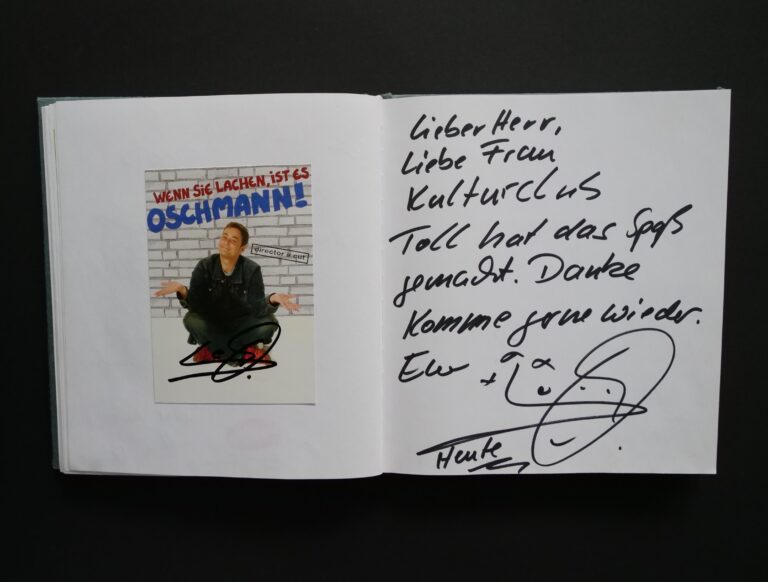 WENN SIE LACHEN, IST ES
OSCHMANN!
director's cut
Lieber Herr,
Liebe Frau
Kulturclub
Toll hat das Spaß
gemacht. Danke
Komme gerne wieder.
Euer
Heute